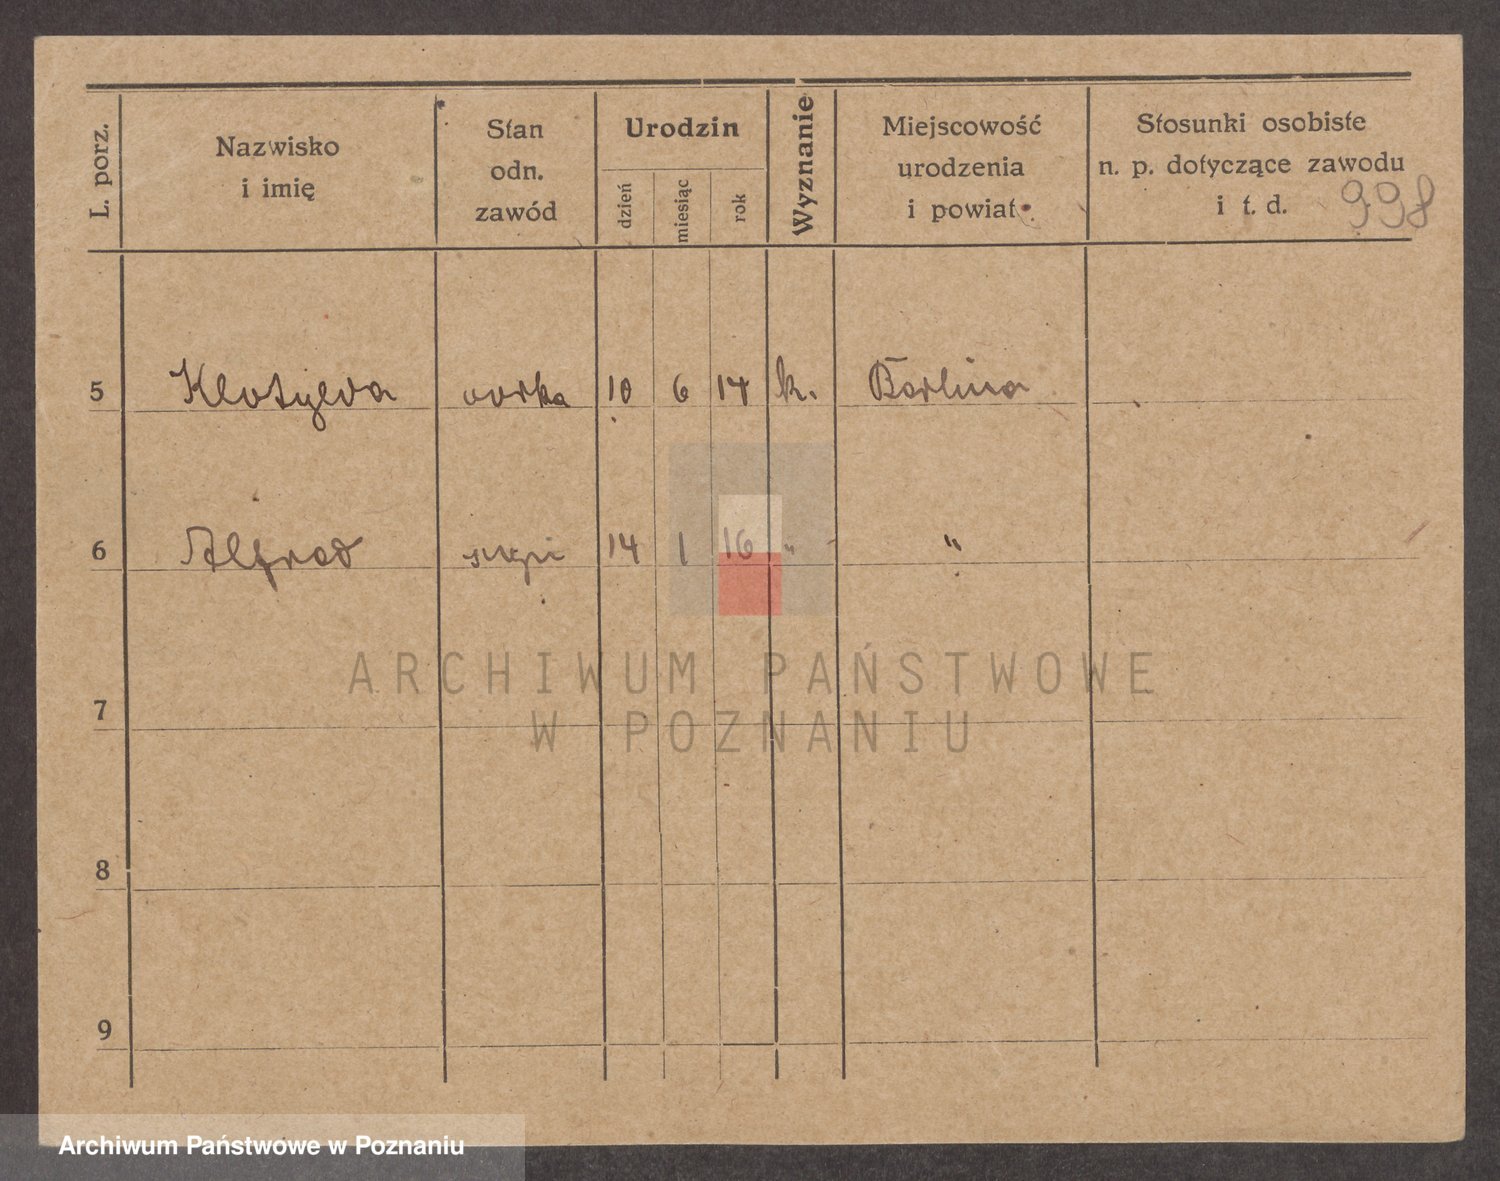 L. porz.
Nazwisko
i imię
Stan
odn.
zawód
Urodzin
dzień
miesiąc
rok
Wyznanie
Miejscowość
urodzenia
i powiat
Stosunki osobiste
n. p. dotyczące zawodu
i t. d.
998
5 Klotylda córka 10 6 14 k. Berlina
6 Alfred 14 1 16 " "
7
8
9
ARCHIWUM PAŃSTWOWE
W POZNANIU
Archiwum Państwowe w Poznaniu